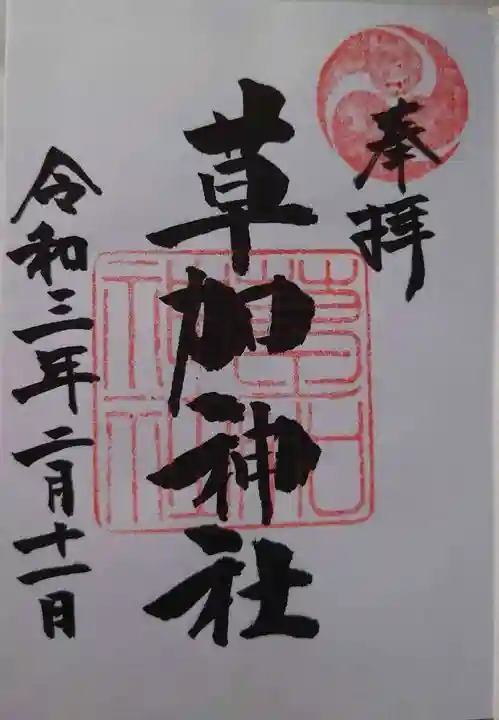 奉拝
草加神社
令和三年二月十一日